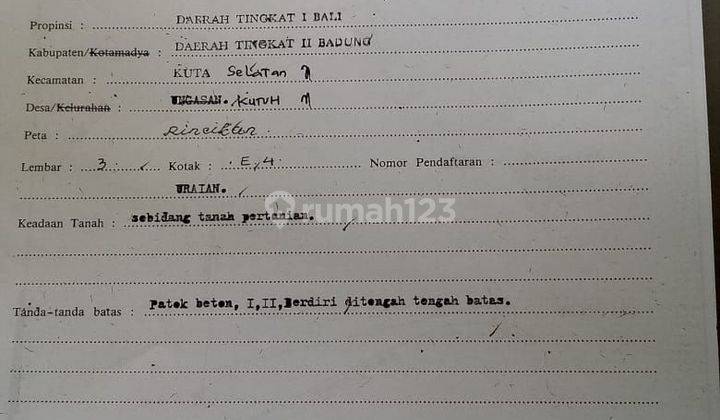 Propinsi : DAERAH TINGKAT I BALI
Kabupaten/Kotamadya : DAERAH TINGKAT II BADUNG
Kecamatan : KUTA Selatan
Desa/Kelurahan : UNGASAN. KUTUH
Peta : Rincikan
Lembar : 3 Kotak : E/4 Nomor Pendaftaran :
URAIAN.
rumah123
Keadaan Tanah : sebidang tanah pertanian.
Tanda-tanda batas : Patok beton, I,II,Berdiri ditengah tengah batas.